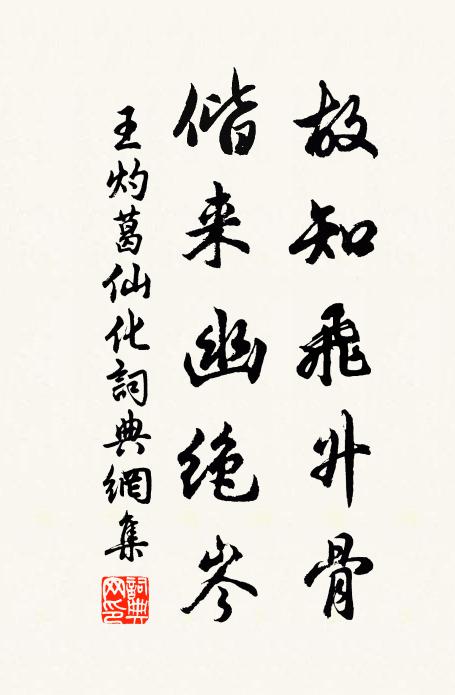 故知飛升骨
偕来幽绝岑
王灼葛仙化詞典網集
詞典網印